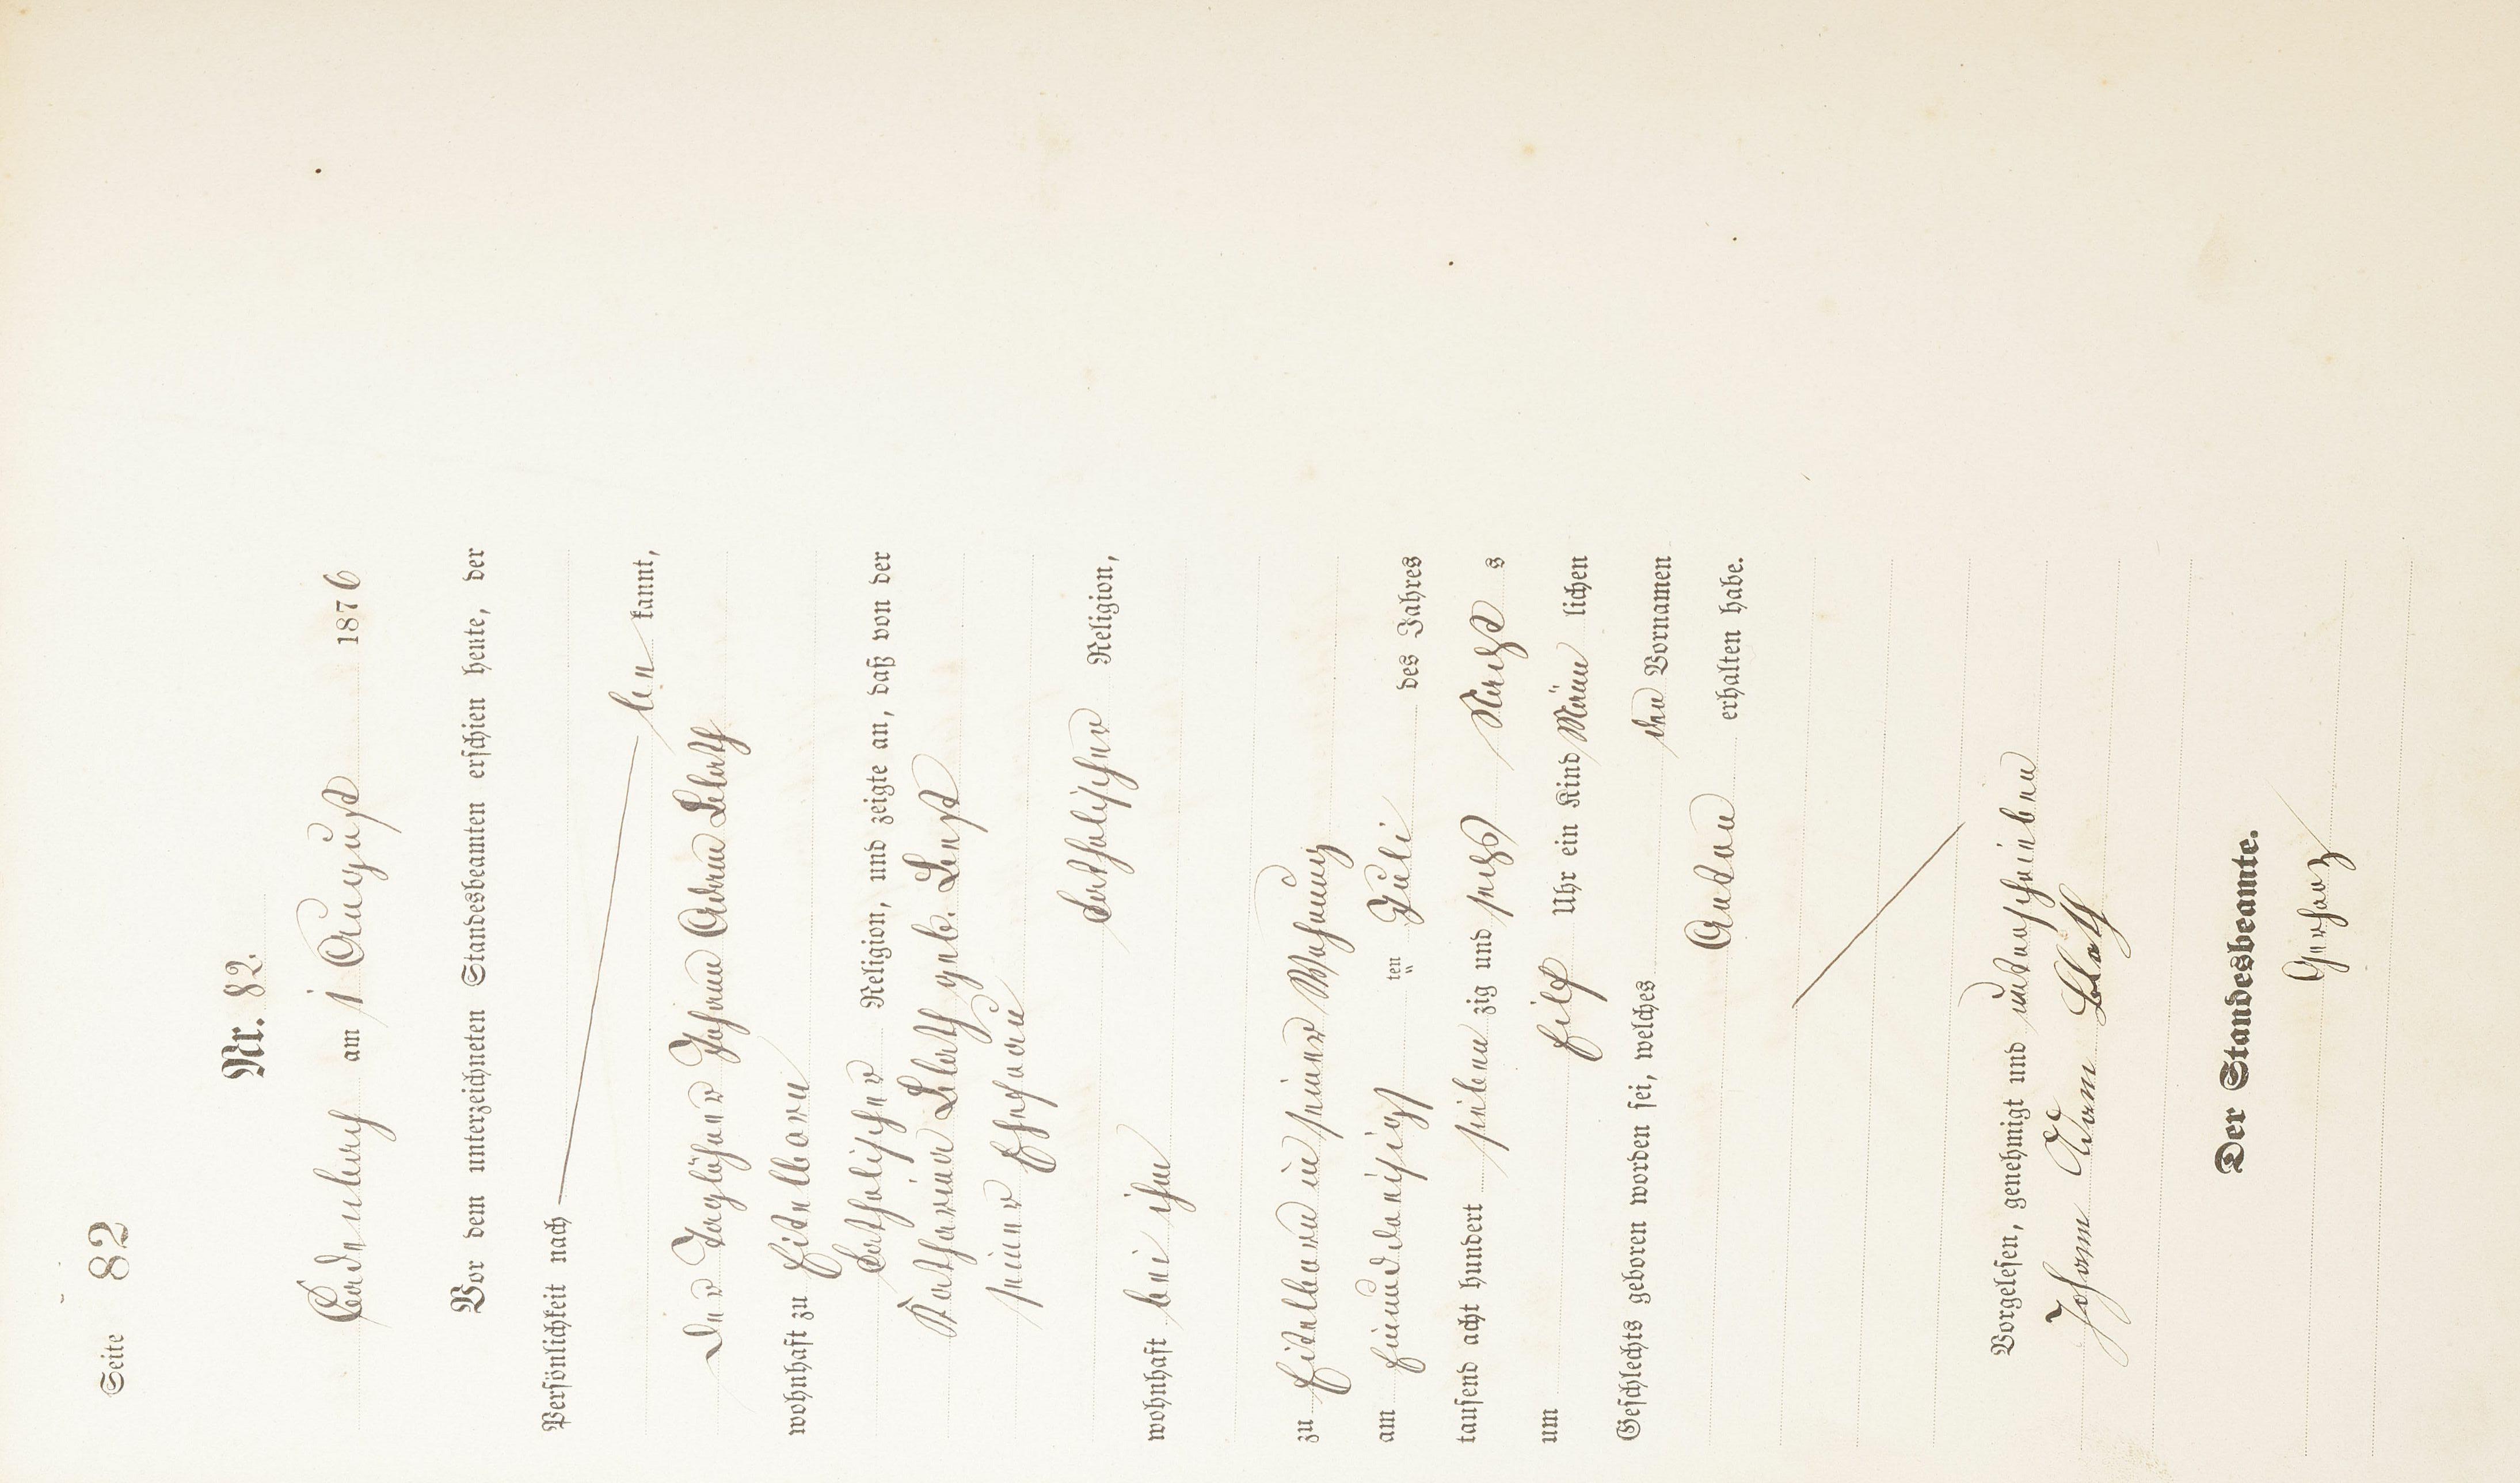 Seite 82
Nr. 82.
Cadenbach am 1 August 1876
Vor dem unterzeichneten Standesbeamten erschien heute, der
Persönlichkeit nach
be kannt,
der Taglöhner Johann Adam Blath
wohnhaft zu Eitelborn
katholischer Religion, und zeigte an, daß von der
Katharina Blath geb.
seiner Ehefrau
katholischer Religion,
wohnhaft bei ihm
zu Eitelborn in seiner Wohnung
am einunddreisigst ten Juli des Jahres
tausend acht hundert sieben zig und sechs Nachts
um eilf Uhr ein Kind Männ lichen
Geschlechts geboren worden sei, welches den Vornamen
Anton erhalten habe.
Vorgelesen, genehmigt und unterschrieben
Johann Adam Blath
Der Standesbeamte.
Gerharz